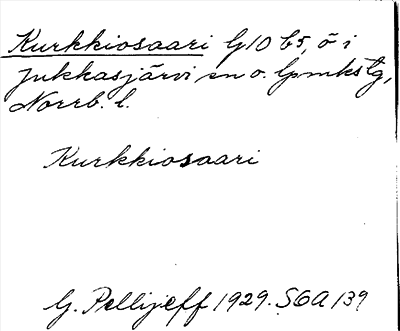 Kurkkiosaari G10 b5, ö i
Jukkasjärvi sn o. lpmkstg,
Norrb. l.
Kurkkiosaari
G. Pellijeff 1929. SOA 139